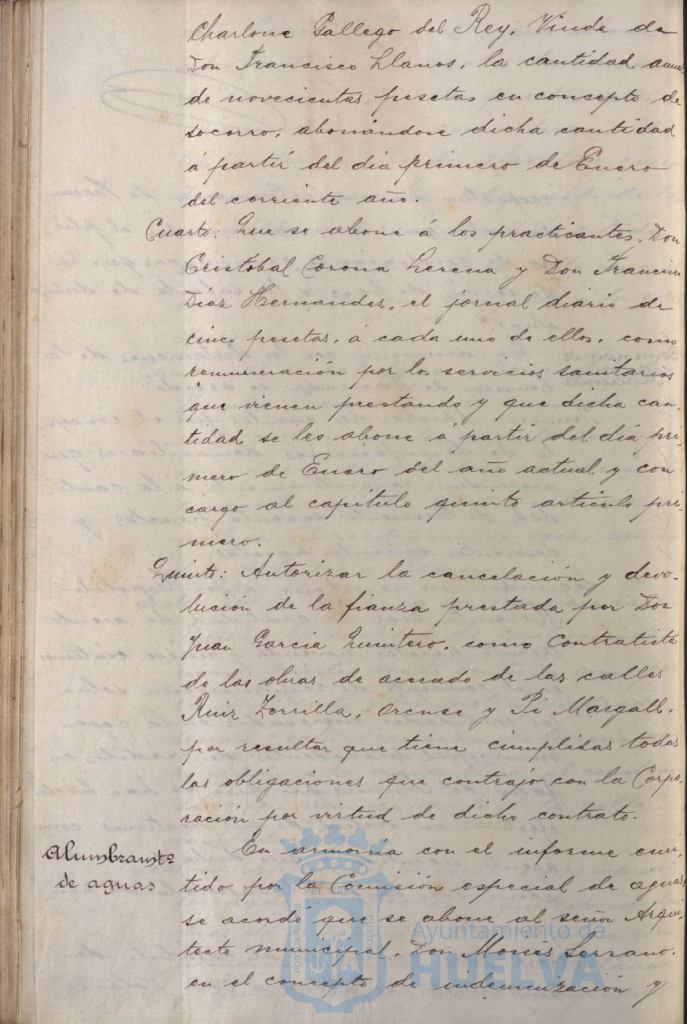 Charlone Gallego del Rey, Viuda de
Don Francisco Llanos, la cantidad anual
de novecientas pesetas en concepto de
socorro, abonándose dicha cantidad
á partir del dia primero de Enero
del corriente año.
Cuarto: Que se abone á los practicantes, Don
Cristóbal Corona Lerena y Don Francisco
Díaz Hernandez, el jornal diario de
cinco pesetas, á cada uno de ellos, como
remuneración por los servicios sanitarios
que vienen prestando y que dicha can-
tidad se les abone á partir del día pri-
mero de Enero del año actual y con
cargo al capítulo quinto artículo pri-
mero.
Quinto: Autorizar la cancelación y devo-
lución de la fianza prestada por Don
Juan García Quintero, como Contratista
de las obras de acerado de las calles
Ruiz Zorrilla, Orense y Pi Margall,
por resultar que tiene cumplidas todas
las obligaciones que contrajó con la Corpo-
ración por virtud de dicho contrato.
Alumbramto
de aguas
En armonía con el informe emi-
tido por la Comisión especial de aguas
se acordó que se abone al señor Arqui-
tecto municipal, Don Moisés Serrano,
en el concepto de indemnización y
Ayuntamiento de
HUELVA